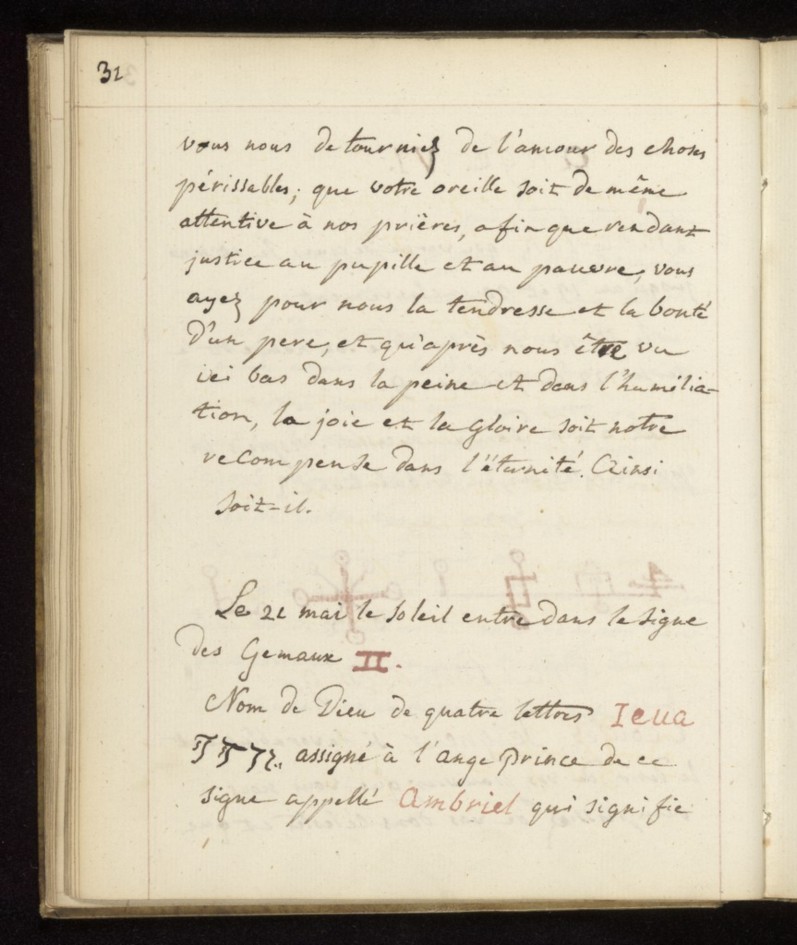 32
vous nous detourniez de l'amour des choses
périssables; que votre oreille soit de même
attentive à nos prières, afin que rendant
justice au pupille et au pauvre, vous
ayez pour nous la tendresse et la bonté
d'un pere, et qu'après nous être vu
ici bas dans la peine et dans l'humilia-
tion, la joie et la gloire soit notre
recompense dans l'éternité. Ainsi
soit-il.
Le 21 mai le soleil entre dans le signe
des Gemaux II.
Nom de Dieu de quatre lettres Ieua
assigné à l'ange prince de ce
signe appellé Ambriel qui signifie